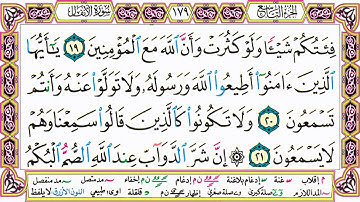 الجزء التاسع ١٧٩ سورة الأنفال
فِئَتُكُمْ شَيْـًٔا وَلَوْ كَثُرَتْ وَأَنَّ ٱللَّهَ مَعَ ٱلْمُؤْمِنِينَ ١٩ يَٰٓأَيُّهَا
ٱلَّذِينَ ءَامَنُوٓا۟ أَطِيعُوا۟ ٱللَّهَ وَرَسُولَهُۥ وَلَا تَوَلَّوْا۟ عَنْهُ وَأَنتُمْ
تَسْمَعُونَ ٢٠ وَلَا تَكُونُوا۟ كَٱلَّذِينَ قَالُوا۟ سَمِعْنَا وَهُمْ
لَا يَسْمَعُونَ ٢١ إِنَّ شَرَّ ٱلدَّوَآبِّ عِندَ ٱللَّهِ ٱلصُّمُّ ٱلْبُكْمُ